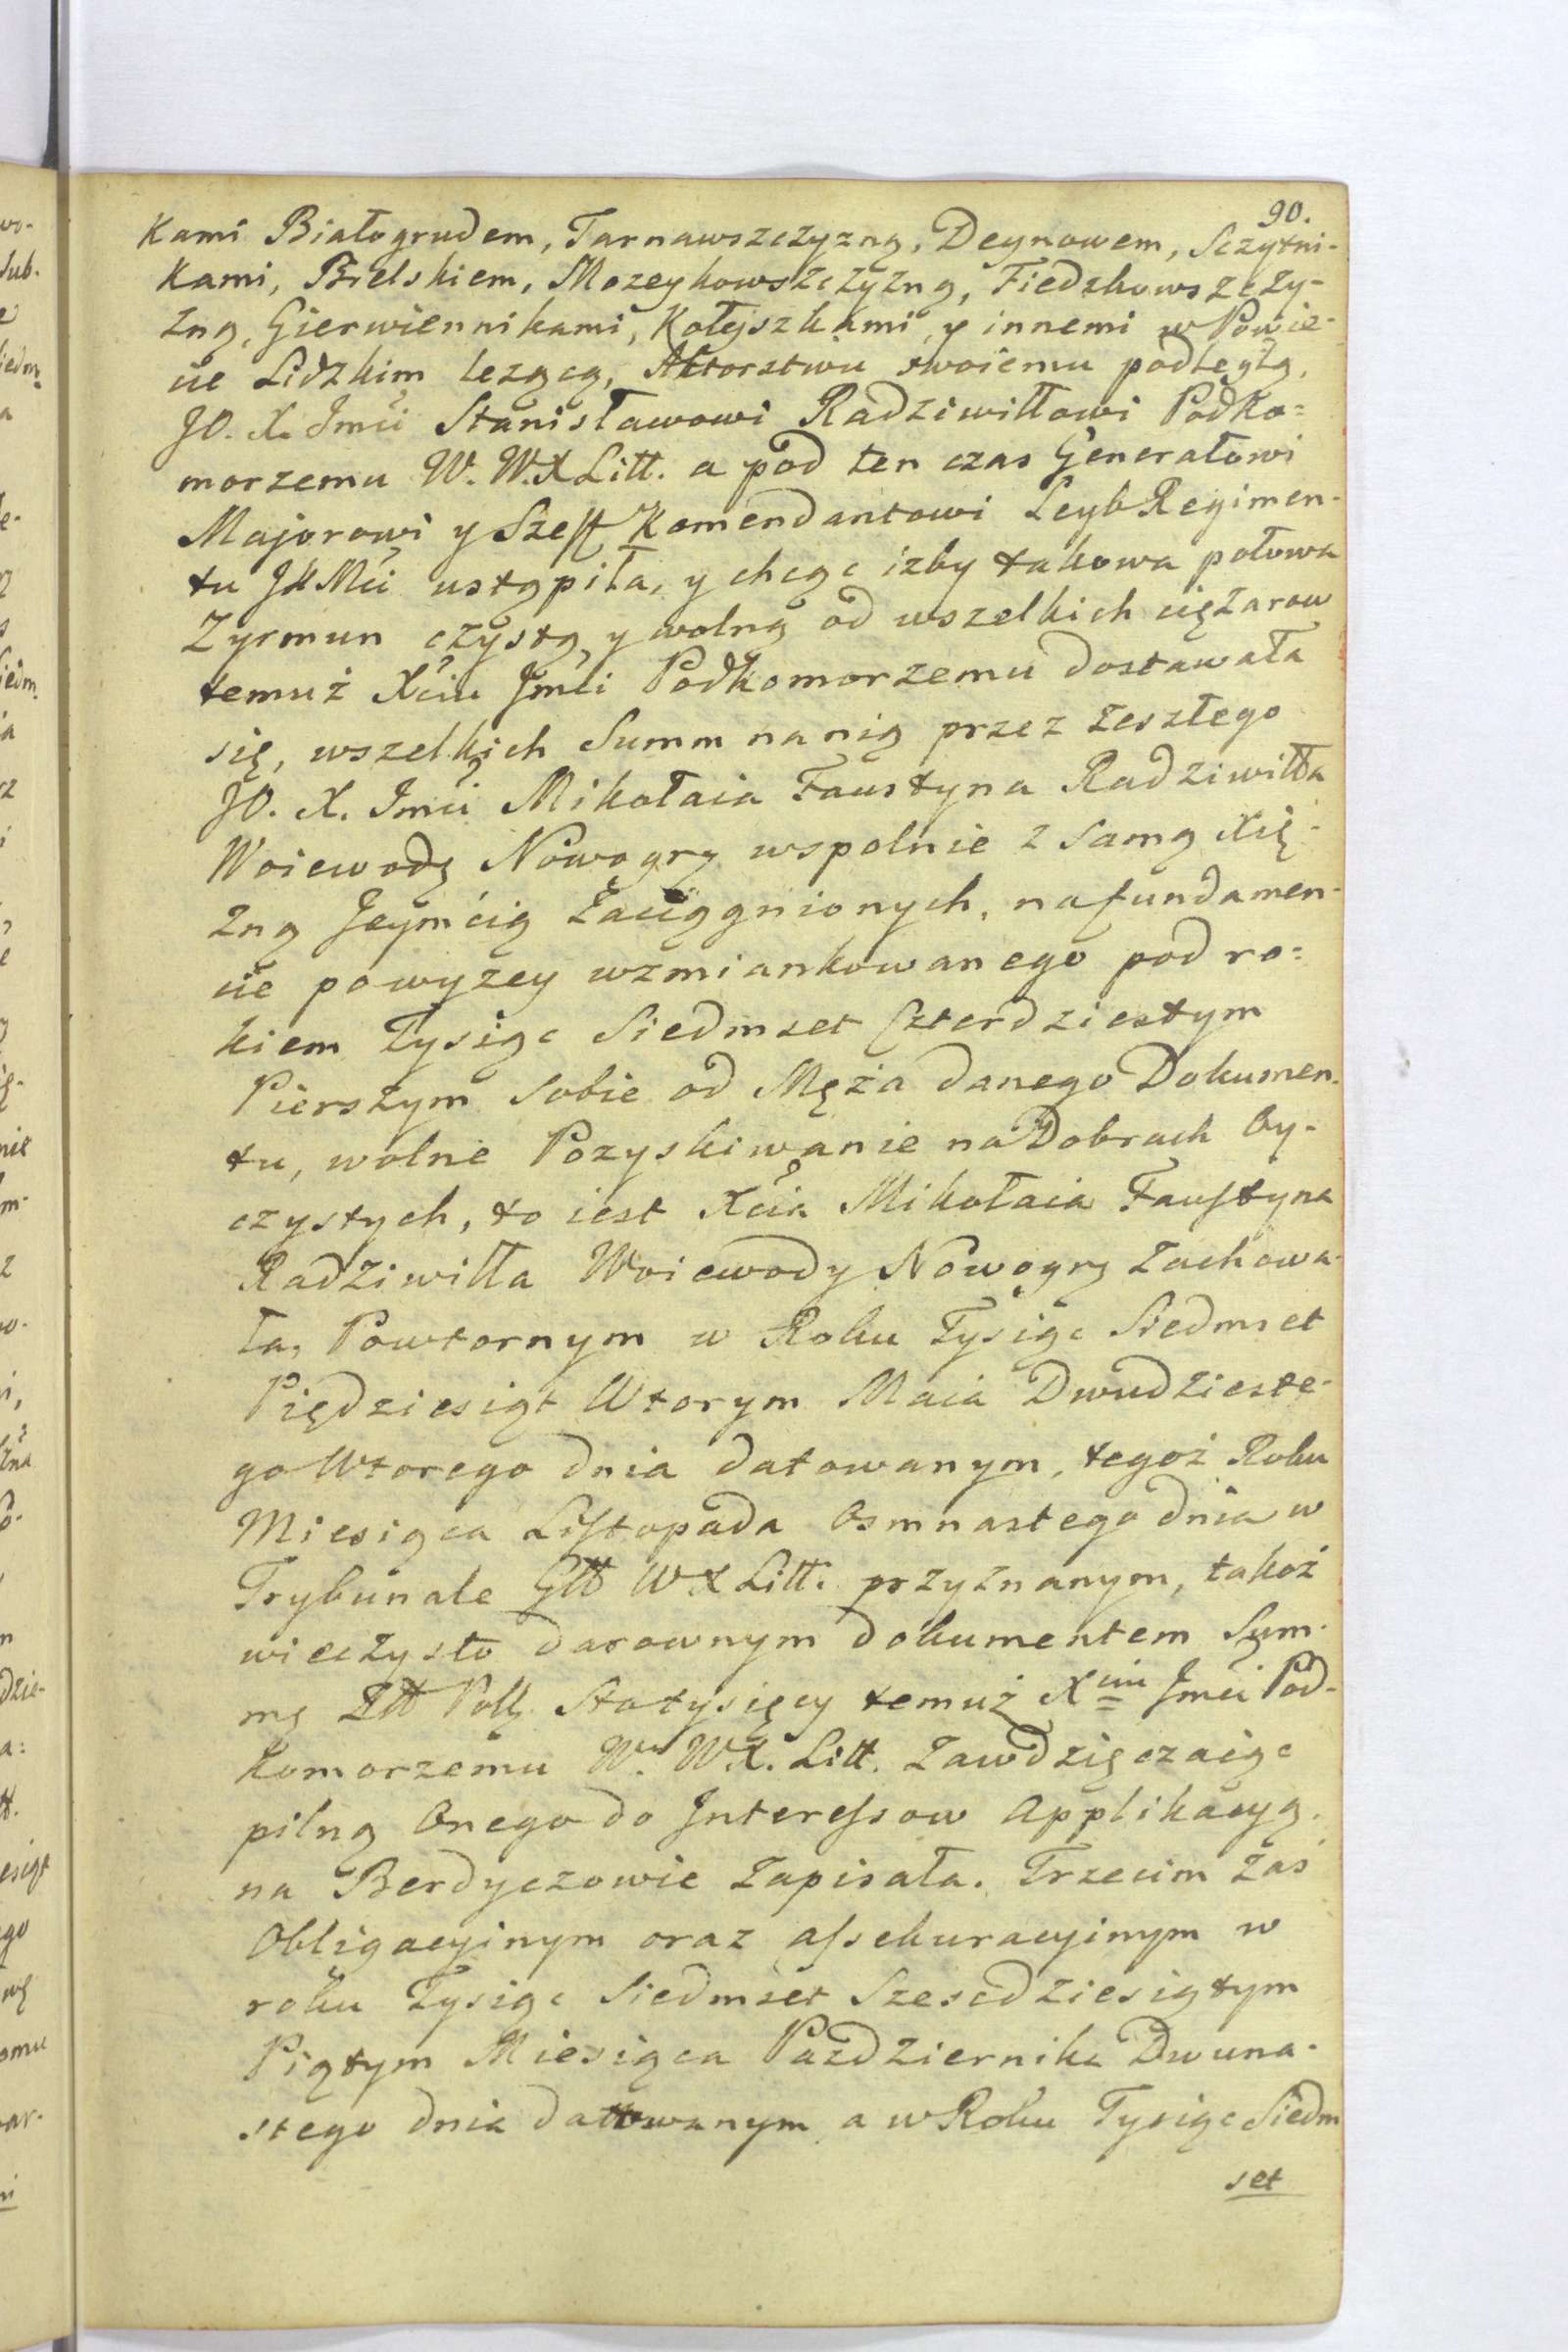 90.
kami Białogrudem, Tarnawszczyzną, Deynowem, Sczytni-
kami, Bielskiem, Mozeykowszczyzną, Fiedzkowszczy-
zną, Gierwiennikami, Kołyszkami, y innemi w Powie-
cie Lidzkim leżącą, Aktorstwu swoiemu podległą,
JO. X. Jmci Stanisławowi Radziwiłłowi Podko=
morzemu W. W.X Litt. a pod ten czas Generałowi
Majorowi y Szeff Komendantowi Leyb Regimen-
tu JKMci ustąpiła, y chcąc iżby takowa połowa
Zyrmun czystą y wolną od wszelkich ciężarow
temuż Xciu Jmci Podkomorzemu dostawała
się, wszelkich Summ na nią przez zeszłego
JO. X. Jmci Mikołaia Faustyna Radziwiłła
Woiewodę Nowogrz wspolnie z samą Xię-
żną Jeymcią zaciągnionych, na fundamen-
cie powyżey wzmiankowanego pod ro=
kiem Tysiąc Siedmset Czterdziestym
Pierszym sobie od Męża danego Dokumen-
tu, wolne Pozyskiwanie na Dobrach Oy-
czystych, to iest Xcia Mikołaia Faustyna
Radziwiłła Woiewody Nowogrz zachowa-
ła, Powtornym w Roku Tysiąc Siedmset
Pięćdziesiąt Wtorym Maia Dwudzieste-
go Wtorego dnia datowanym, tegoż Roku
Miesiąca Listopada Osmnastego dnia w
Trybunale Głł WX Litt. przyznanym, takoż
wieczysto darownym dokumentem Sum-
mę Złł Polł Stotysięcy temuż Xciu Jmci Pod-
komorzemu W. WX. Litt. zawdzięczaiąc
pilną Onego do Interessow Applikacyą,
na Berdyczowie zapisała. Trzecim zaś
Obligacyinym oraz assekuracyinym w
roku Tysiąc Siedmset Szescdziesiątym
Piątym Miesiąca Pazdziernika Dwuna-
stego dnia datowanym a w Roku Tysiąc Siedm
set